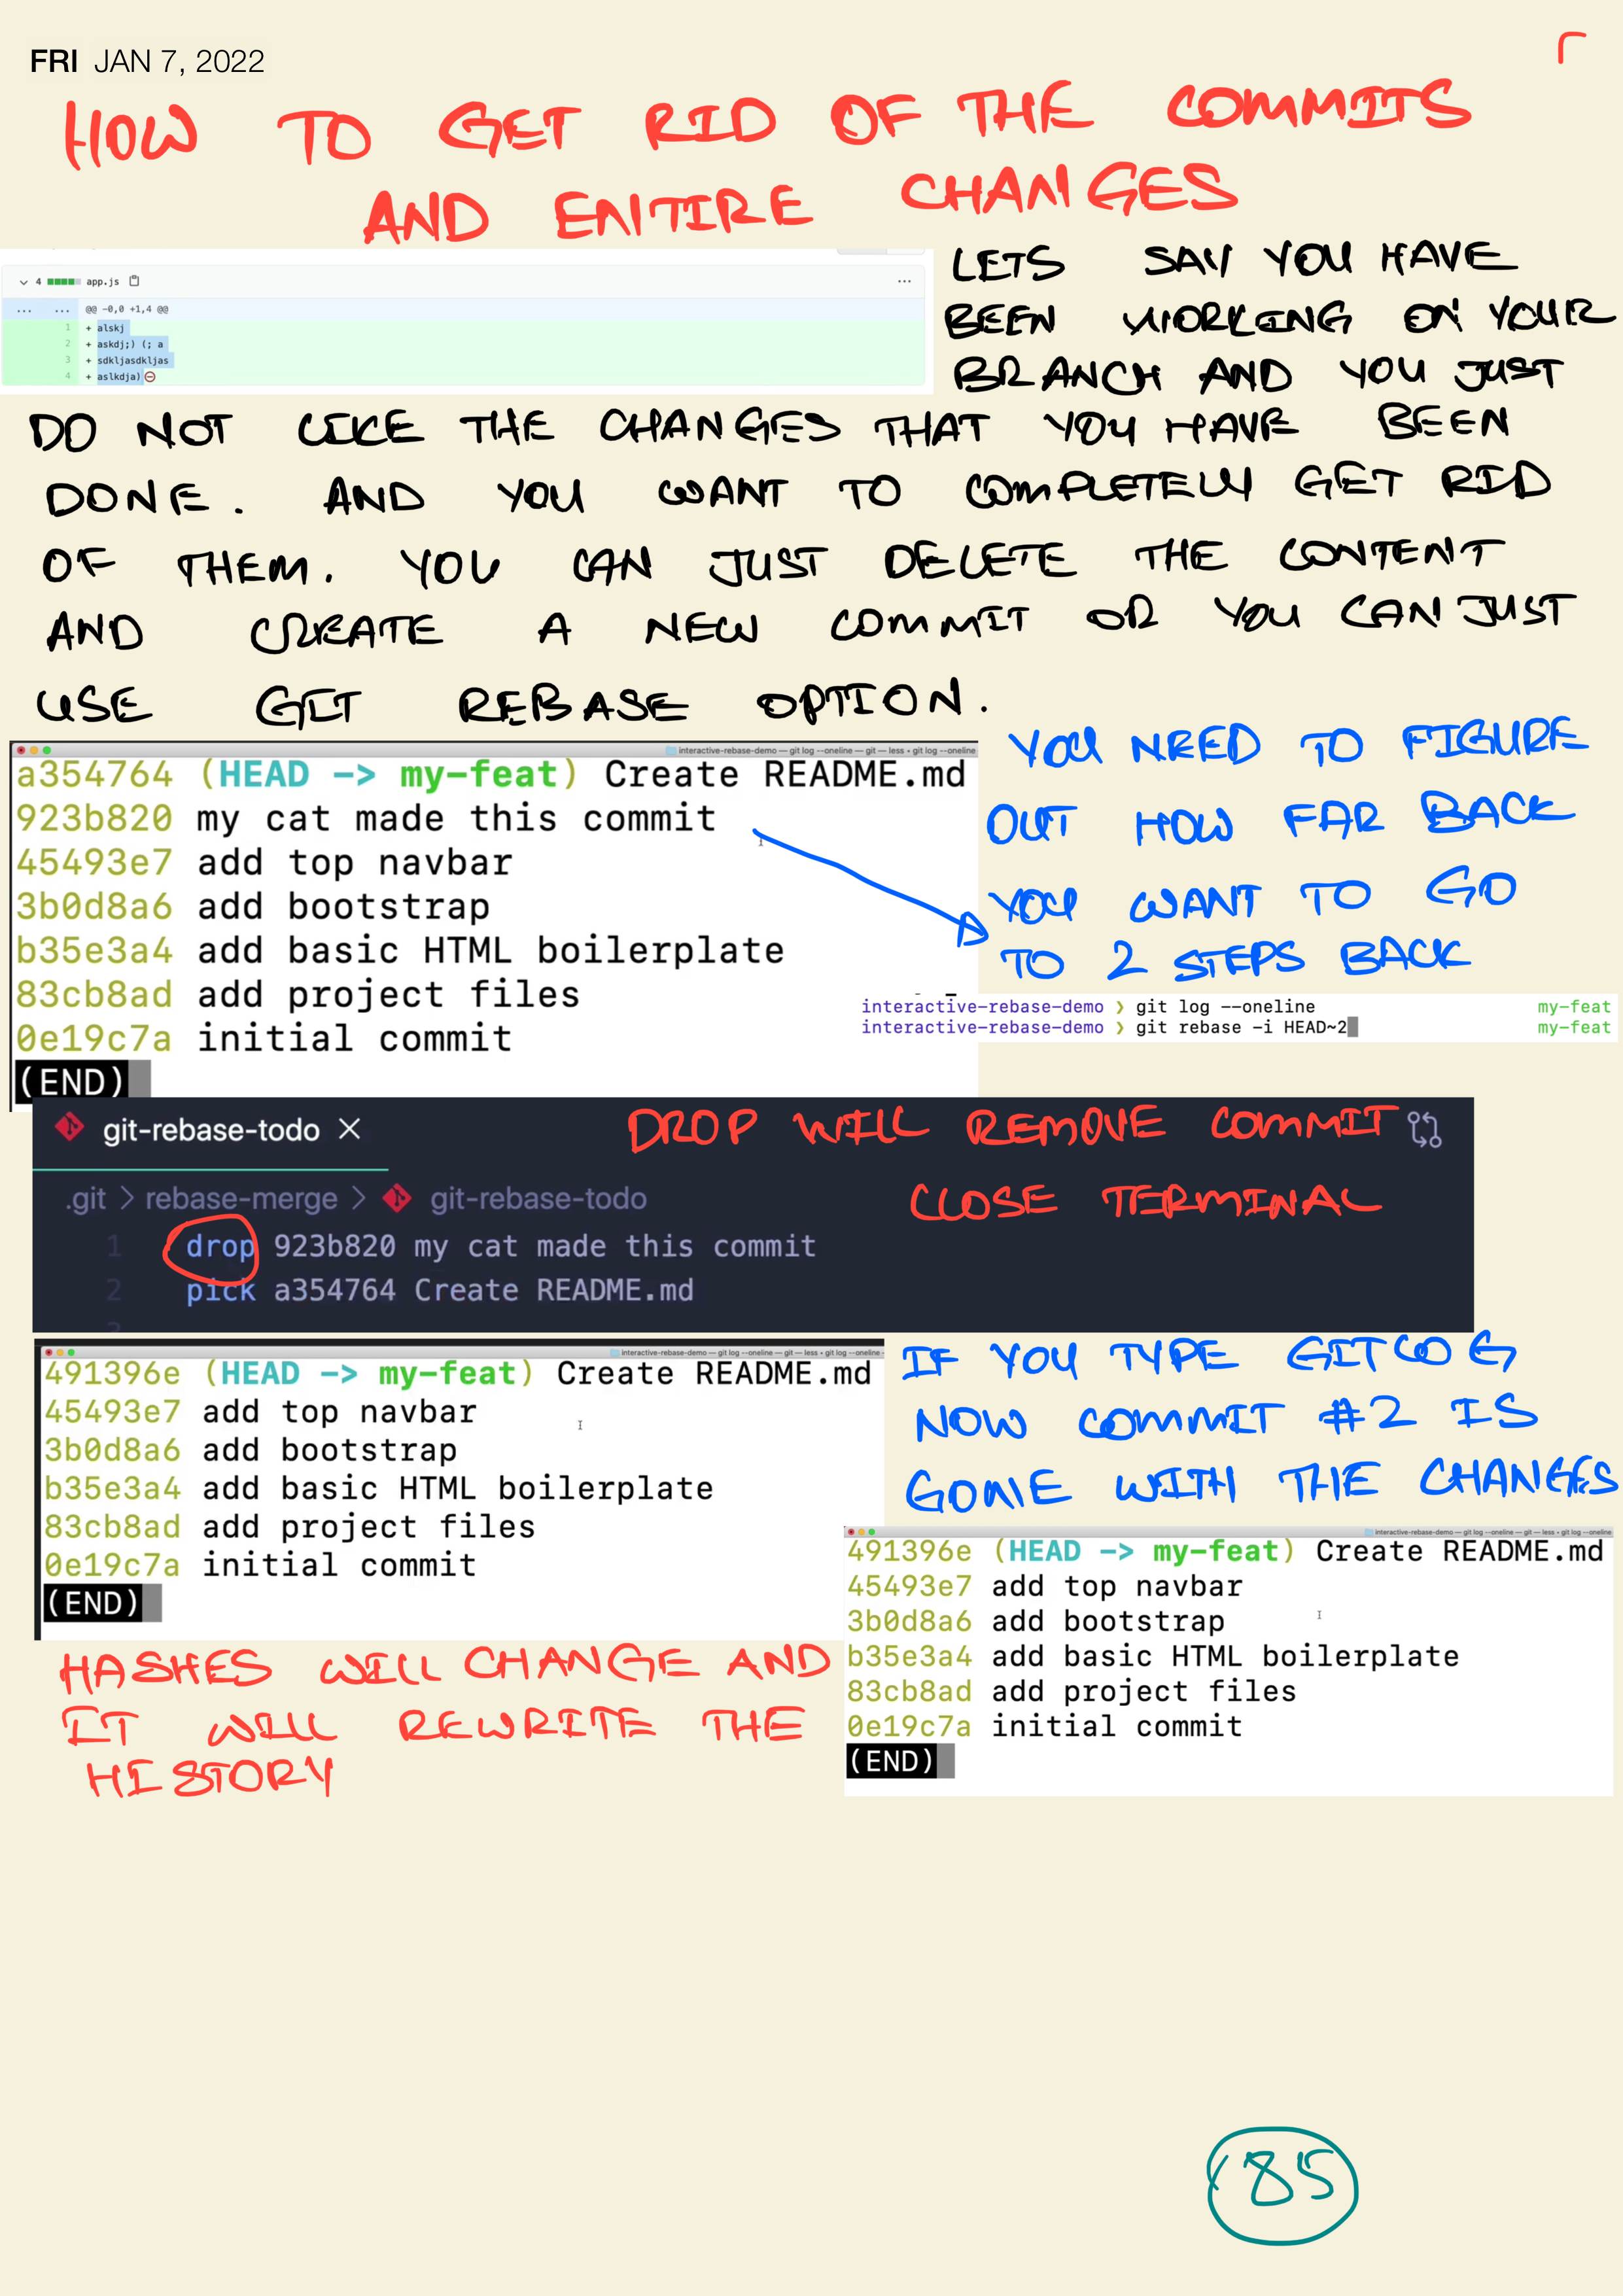 FRI JAN 7, 2022
HOW TO GET RID OF THE COMMITS
AND ENTIRE CHANGES
4 app.js
... ... @@ -0,0 +1,4 @@
1 + alskj
2 + askdj;) (; a
3 + sdkljasdkljas
4 + aslkdja)
LETS SAY YOU HAVE
BEEN WORKING ON YOUR
BRANCH AND YOU JUST
DO NOT LIKE THE CHANGES THAT YOU HAVE BEEN
DONE. AND YOU WANT TO COMPLETELY GET RID
OF THEM. YOU CAN JUST DELETE THE CONTENT
AND CREATE A NEW COMMIT OR YOU CAN JUST
USE GIT REBASE OPTION.
interactive-rebase-demo — git log --oneline — git — less • git log --oneline
a354764 (HEAD -> my-feat) Create README.md
923b820 my cat made this commit
45493e7 add top navbar
3b0d8a6 add bootstrap
b35e3a4 add basic HTML boilerplate
83cb8ad add project files
0e19c7a initial commit
(END)
YOU NEED TO FIGURE
OUT HOW FAR BACK
YOU WANT TO GO
TO 2 STEPS BACK
interactive-rebase-demo ❯ git log --oneline my-feat
interactive-rebase-demo ❯ git rebase -i HEAD~2 my-feat
git-rebase-todo ×
DROP WILL REMOVE COMMIT
.git > rebase-merge > git-rebase-todo
CLOSE TERMINAL
1 drop 923b820 my cat made this commit
2 pick a354764 Create README.md
interactive-rebase-demo — git log --oneline — git — less • git log --oneline
491396e (HEAD -> my-feat) Create README.md
45493e7 add top navbar
3b0d8a6 add bootstrap
b35e3a4 add basic HTML boilerplate
83cb8ad add project files
0e19c7a initial commit
(END)
IF YOU TYPE GIT LOG
NOW COMMIT #2 IS
GONE WITH THE CHANGES
interactive-rebase-demo — git log --oneline — git — less • git log --oneline
491396e (HEAD -> my-feat) Create README.md
45493e7 add top navbar
3b0d8a6 add bootstrap
b35e3a4 add basic HTML boilerplate
83cb8ad add project files
0e19c7a initial commit
(END)
HASHES WILL CHANGE AND
IT WILL REWRITE THE
HISTORY
85